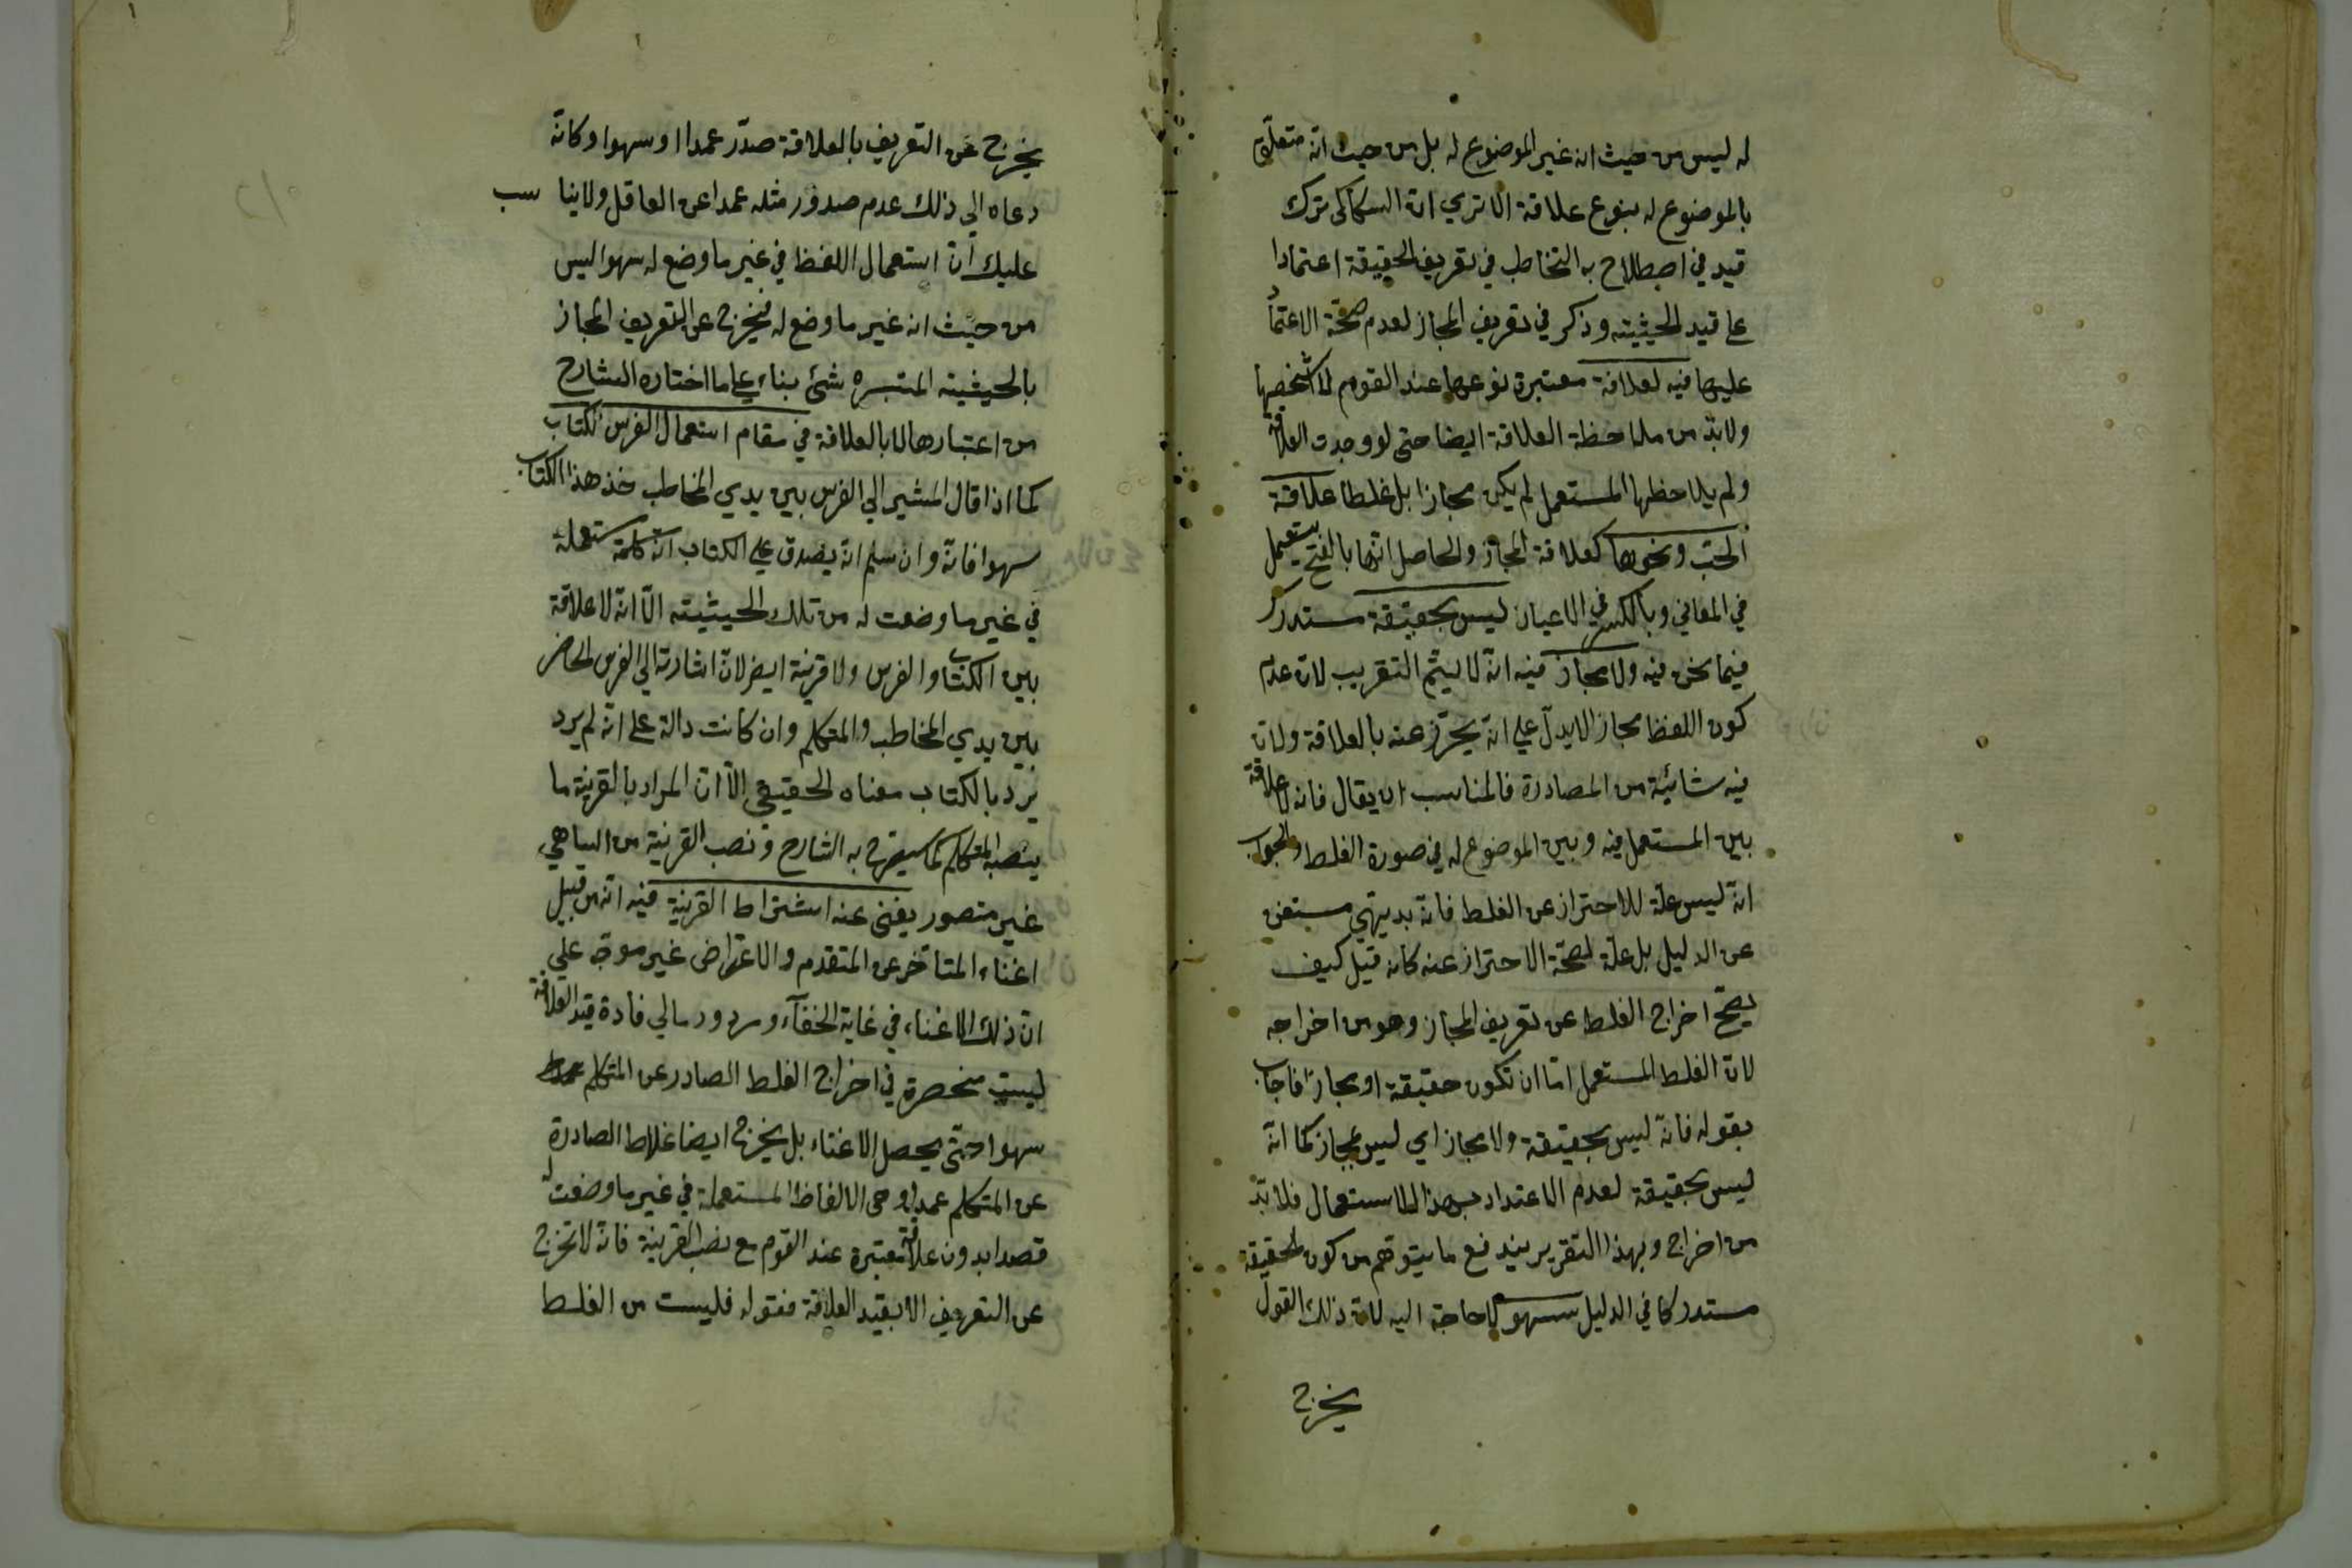 له ليس من حيث انه غير الموضوع له بل من حيث انه متعلق
بالموضوع له بنوع علاقة الا تري ان السكاكى ترك
قيد في اصطلاح به التخاطب في تعريف الحقيقة اعتمادا
على قيد الحيثيته وذكر في تعريف المجاز لعدم صحة الاعتماد
عليها فيه لعلاقة معتبرة نوعها عند القوم لا شخصها
ولابد من ملاحظة العلاقة ايضا حتى لو وجدت العلاقة
ولم يلاحظها المستعمل لم يكن مجازا بل غلطا علاقة
الحب ونحوها كعلاقة المجاز والحاصل انها بالفتح يستعمل
في المعاني وبالكسر في الاعيان ليس بحقيقة مستدرك
فيما نحن فيه ولا مجاز فيه انه لا يتم التقريب لان عدم
كون اللفظ مجازا لا يدل علي انه يحترز عنه بالعلاقة ولان
فيه شائبة من المصادرة فالمناسب ان يقال فانه لا علاقة
بين المستعمل فيه وبين الموضوع له في صورة الغلط والجواب
انه ليس علة للاحتراز عن الغلط فانه بديهي مستغن
عن الدليل بل علة لصحة الاحتراز عنه كانه قيل كيف
يصح اخراج الغلط عن تعريف المجاز وهو من اخراجه
لان الغلط المستعمل اما ان تكون حقيقة او مجازا فاجاب
بقوله فانه ليس بحقيقة ولا مجاز اي ليس بمجاز كما انه
ليس بحقيقة لعدم الاعتداد بهذا الاستعمال فلا بد
من اخراج وبهذا التقرير يندفع ما يتوهم من كون الحقيقة
مستدركا في الدليل سهوا لا حاجة اليه لان ذلك القول
يخرج
يخرج عن التعريف بالعلاقة صدر عمدا او سهوا وكانه
دعاه الي ذلك عدم صدور مثله عمدا عن العاقل ولا يناسب
عليك ان استعمال اللفظ في غير ما وضع له سهوا ليس
من حيث انه غير ما وضع له فيخرج عن التعريف المجاز
بالحيثيته المعتبره شئ بناء علي ما اختاره الشارح
من اعتبارها لا بالعلاقة في مقام استعمال الفرس لكتاب
كما اذا قال المشير الي الفرس بين يدي المخاطب خذ هذا الكتاب
سهوا فانه وان سلم انه يصدق علي الكتاب انه كلمة مستعملة
في غير ما وضعت له من تلك الحيثيته الا انه لا علاقة
بين الكتاب والفرس ولا قرينة ايض لان اشارته الي الفرس الحاضر
بين يدي المخاطب والمتكلم وان كانت دالة على انه لم يرد
يرد بالكتاب معناه الحقيقي الا ان المراد بالقرينة ما
ينصبه المتكلم كما سيصرح به الشارح ونصب القرينة من الساهي
غير متصور يغنى عنه اشتراط القرينة فيه انه من قبيل
اغناء المتأخر عن المتقدم والاعتراض غير موجه علي
ان ذلك الاغناء في غاية الخفآء ومردود مالي فادة قيد العلاقة
ليست منحصرة في اخراج الغلط الصادر عن المتكلم
سهوا حتى يحصل الاغناء بل يخرج ايضا غلاط الصادرة
عن المتكلم عمدا وهى الالفاظ المستعملة في غير ما وضعت له
قصدا بدون علاقة معتبرة عند القوم مع نصب القرينة فانه لا تخرج
عن التعريف الا بقيد العلاقة فقوله فليست من الغلط